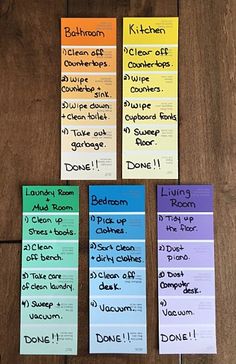 Bathroom
1) Clean off
countertops.
2) Wipe
countertop +
sink.
3) Wipe down
+ clean toilet.
4) Take out
garbage.
DONE!!
Kitchen
1) Clear off
countertops.
2) Wipe
counters.
3) Wipe
cupboard fonts.
4) Sweep
floor.
DONE!!
Laundry Room
+
Mud Room
1) Clean up
Shoes + boots.
2) Clean
off bench.
3) Take care
of clean laundry.
4) Sweep +
vacuum.
DONE!!
Bedroom
1) Pick up
clothes.
2) Sort clean
+ dirty clothes.
3) Clean off
desk.
4) Vacuum.
DONE!!
Living
Room
1) Tidy up
the floor.
2) Dust
piano.
3) Dust
Computer
desk.
4) Vacuum.
DONE!!